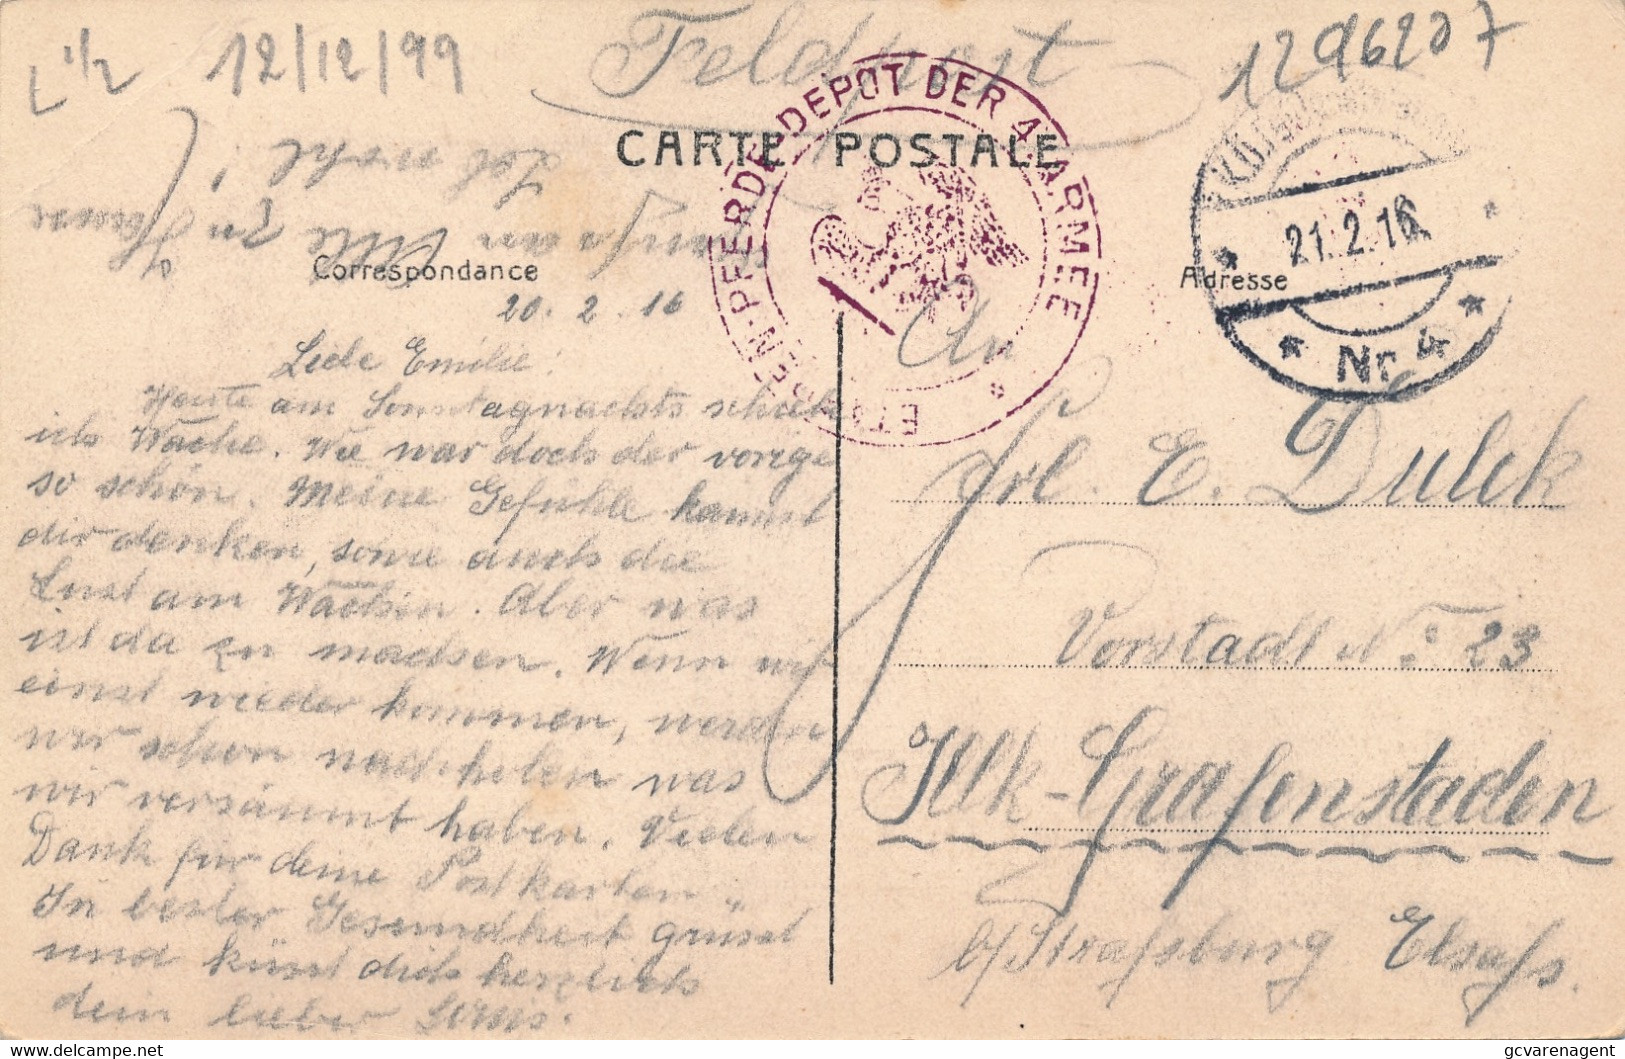 L 1/2 12/12/99 Feldpost 1296207
CARTE POSTALE
ETAPPEN-PFERDE-DEPOT DER 4. ARMEE
21.2.16
* Nr 4 *
Correspondance
Adresse
Gruss an Alle zu Hause
Leb wohl!
20. 2. 16
Liebe Emilie!
Heute am Sonntagnachts schiebe
ich Wache. Wie war doch der vorige
so schön. Meine Gefühle kannst
dir denken, sowie auch die
Lust am Wachen. Aber was
ist da zu machen. Wenn wir
einst wieder kommen, werden
wir schon nachholen was
wir versäumt haben. Vielen
Dank für deine Postkarten.
In bester Gesundheit grüsst
und küsst dich herzlich
dein lieber
An
Frl. E. Dulck
Vorstadt No: 23
Illk-Grafenstaden
b/Strafsburg Elsafs.
gcvarenagent
delcampe.net